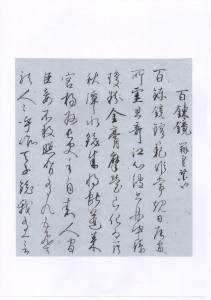 百鍊鏡 辨皇王鑒也
百鍊鏡鎔範非常規日辰處
所靈且奇江心波上舟中鑄
瓊粉金膏磨瑩已化為一片
秋潭水鏡成將獻蓬萊
宮揚州長吏手自封人間
臣妾不合照背有九五飛天
人人呼為天子鏡我有一言